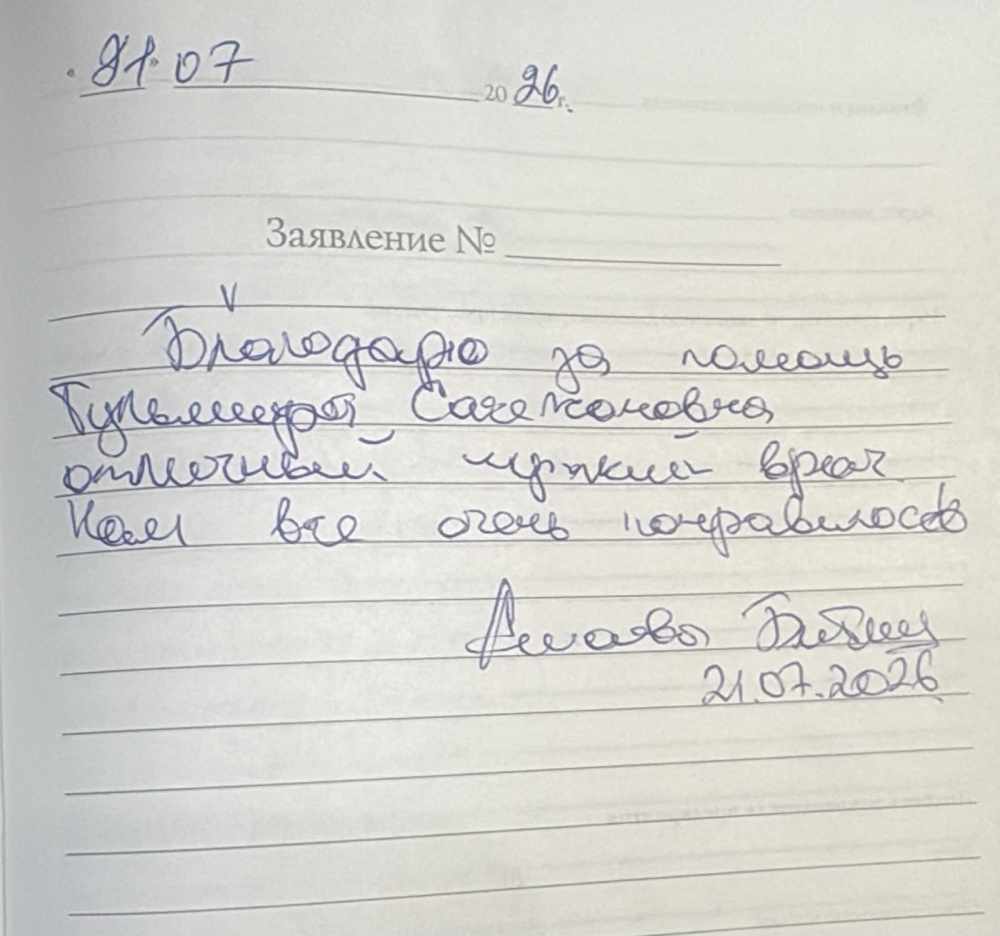 21.07 2026 г.
Заявление №
Благодарю за помощь
Гульмира
отличный чуткий врач
Нам все очень понравилось
21.07.2026